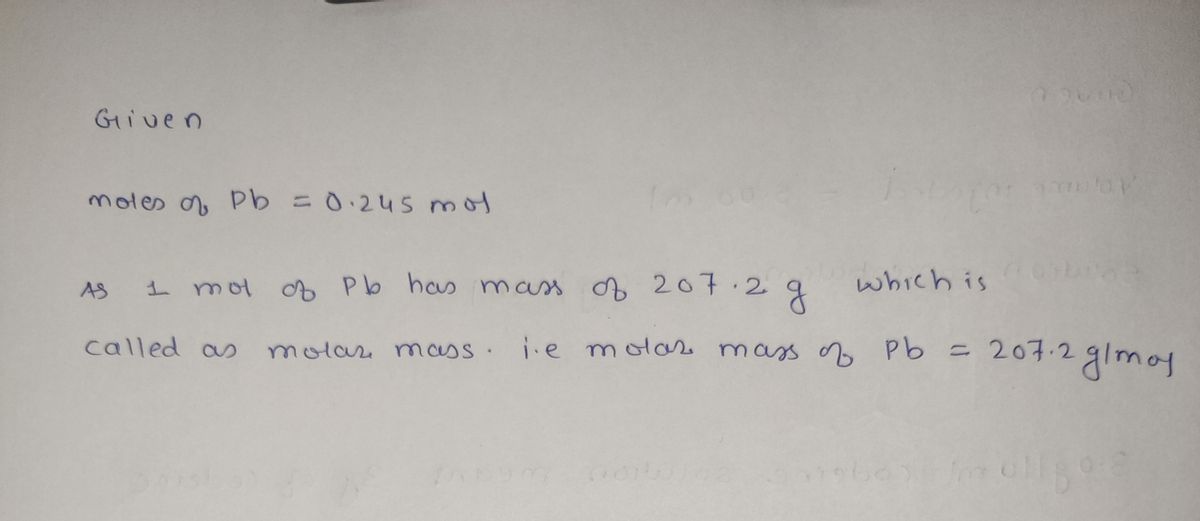 Given
moles of Pb = 0.245 mol
As 1 mol of Pb has mass of 207.2 g which is
called as molar mass. i.e molar mass of Pb = 207.2 g/mol